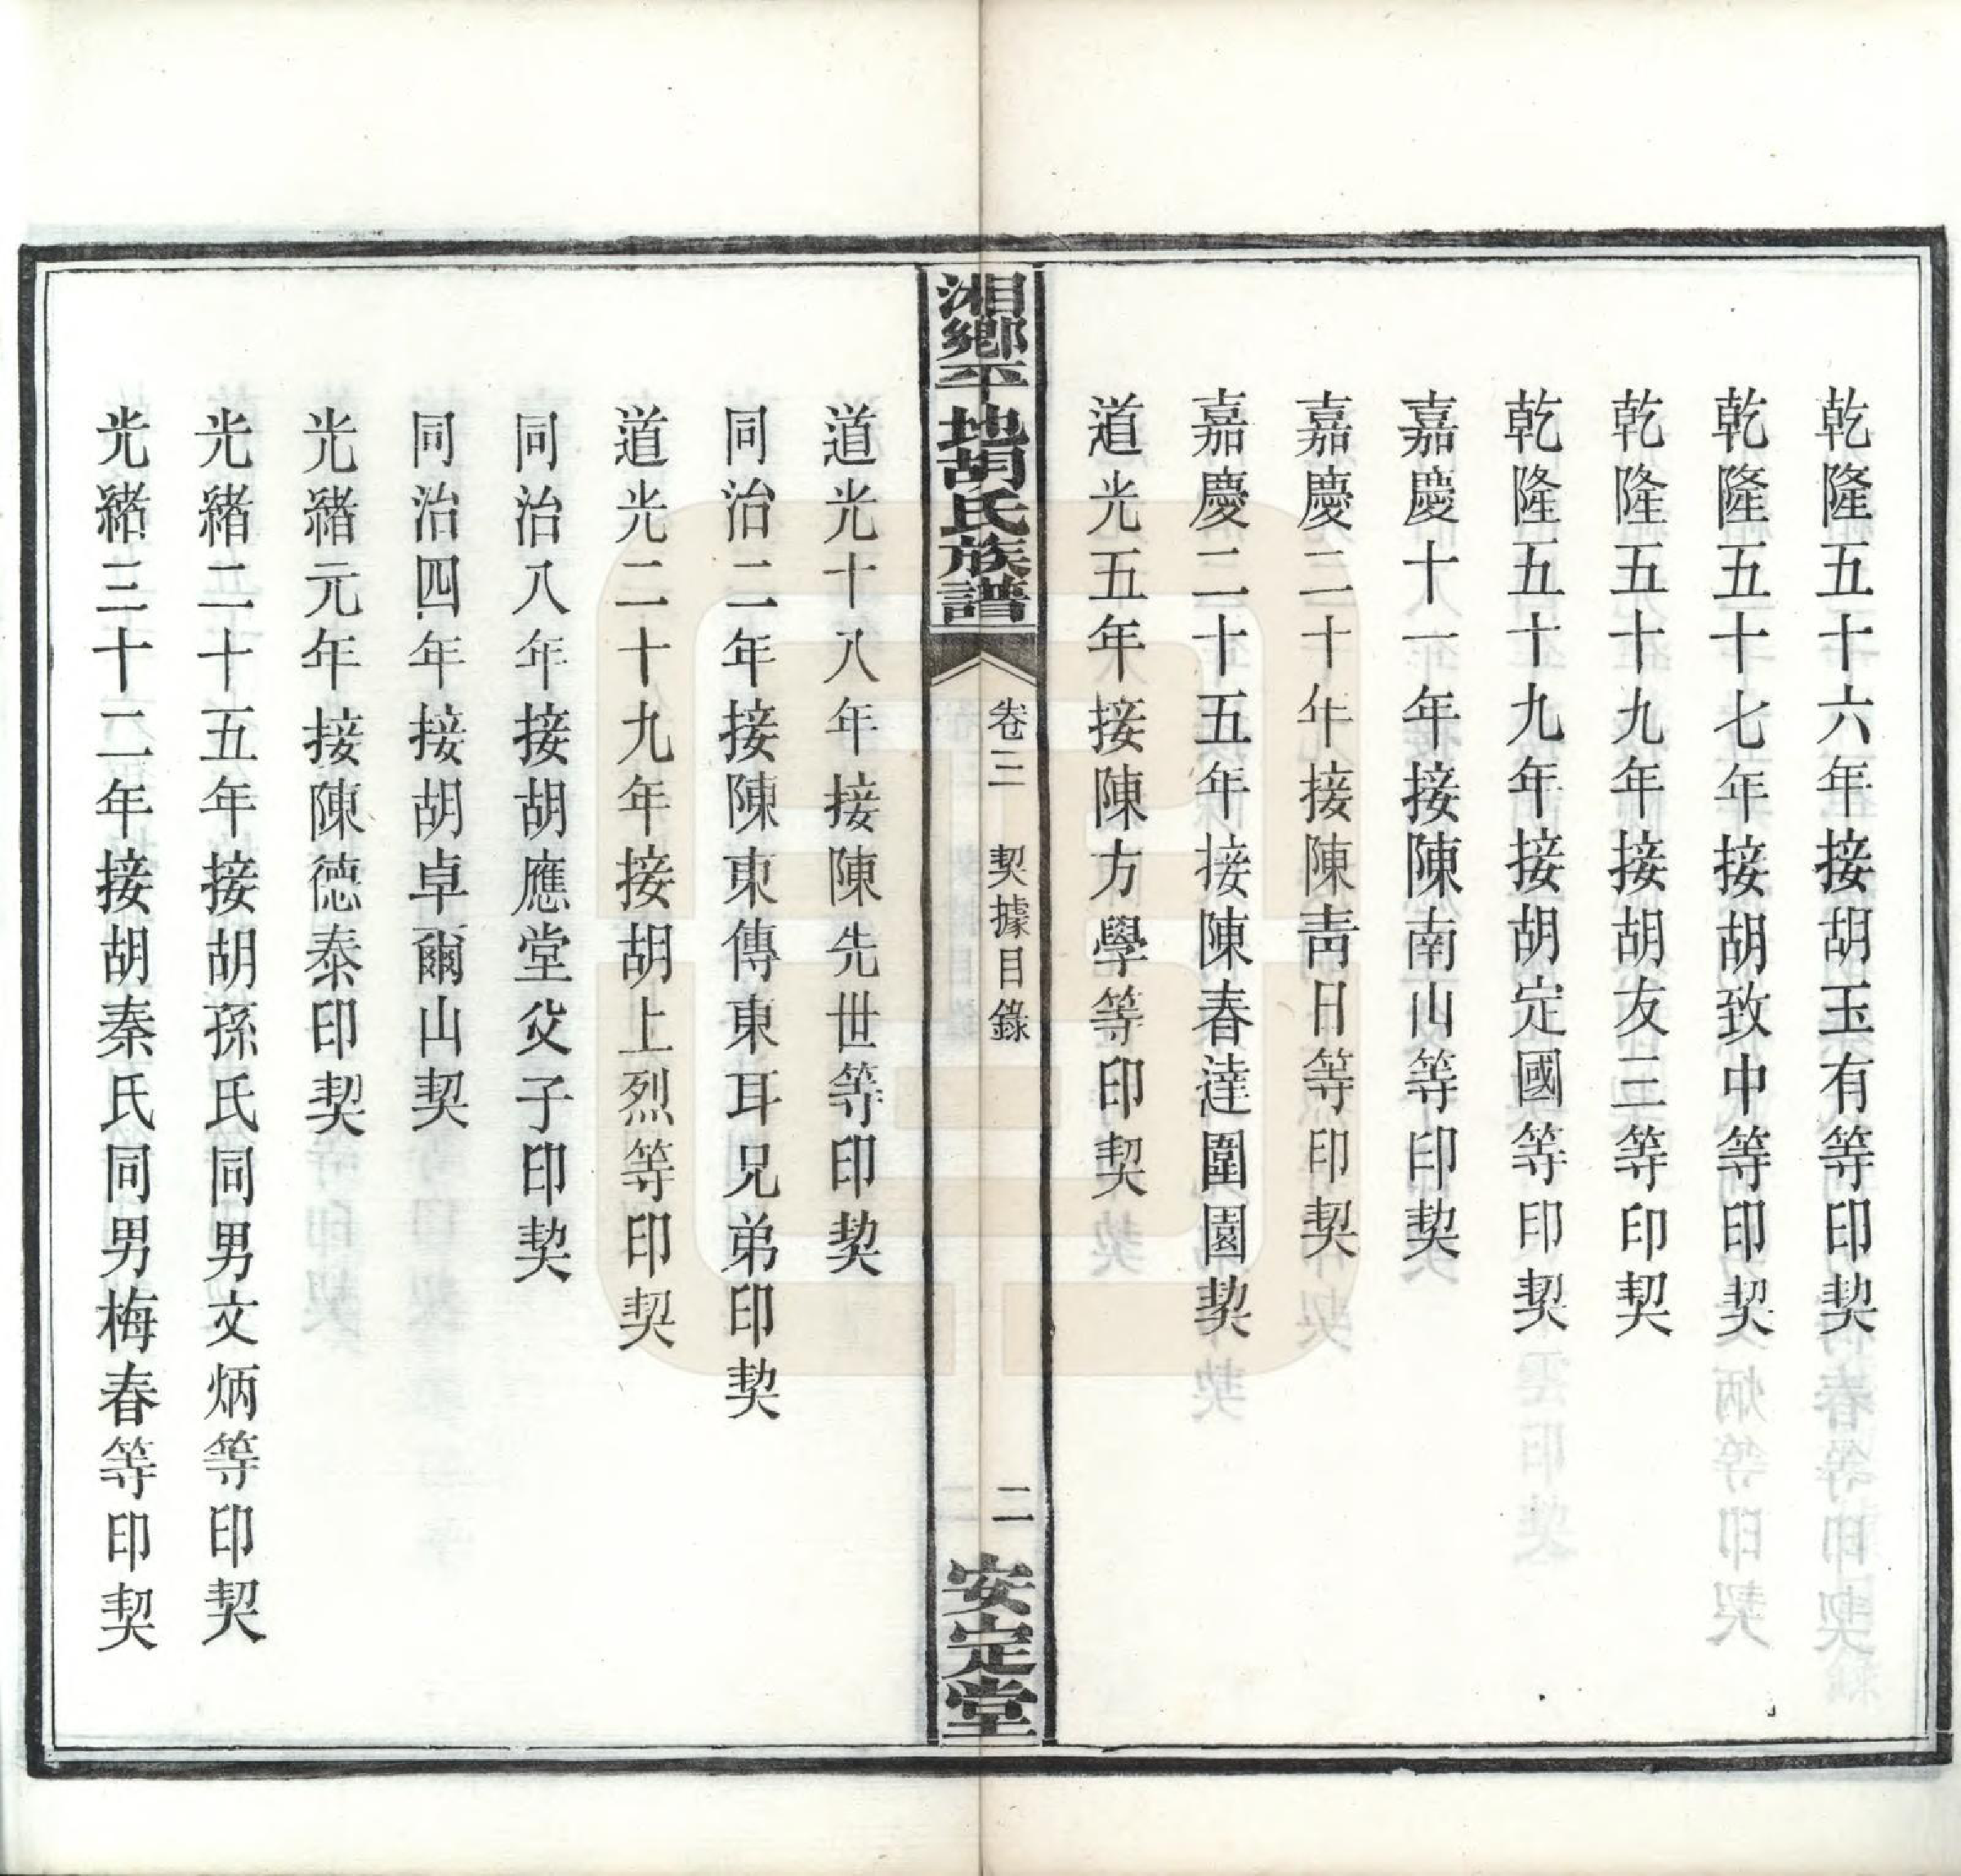 乾隆五十六年接胡玉有等印契
乾隆五十七年接胡致中等印契
乾隆五十九年接胡友三等印契
乾隆五十九年接胡定國等印契
嘉慶十一年接陳南山等印契
嘉慶二十年接陳靑日等印契
嘉慶二十五年接陳春達圍園契
道光五年接陳方學等印契
湘鄉平地胡氏族譜
卷三 契據目錄
二
安定堂
道光十八年接陳先世等印契
同治二年接陳東傳東耳兄弟印契
道光二十九年接胡上烈等印契
同治八年接胡應堂父子印契
同治四年接胡卓爾山契
光緒元年接陳德泰印契
光緒二十五年接胡孫氏同男文炳等印契
光緒三十二年接胡秦氏同男梅春等印契